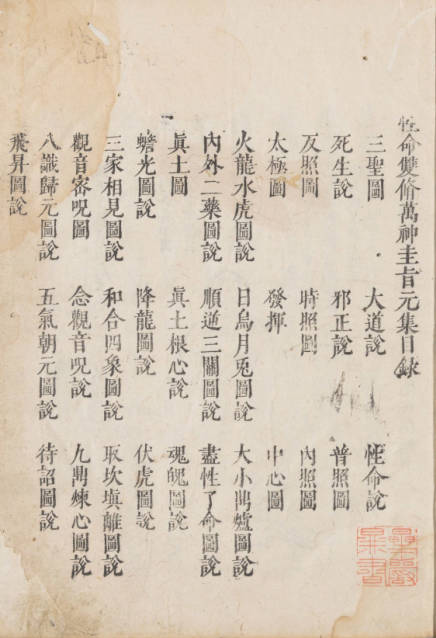 性命雙脩萬神圭旨元集目錄
三聖圖 大道說 性命說
死生說 邪正說 普照圖
反照圖 時照圖 內照圖
太極圖 發揮 中心圖
火龍水虎圖說 日烏月兔圖說 大小鼎爐圖說
內外二藥圖說 順逆三關圖說 盡性了命圖說
眞土圖 眞土根心說 魂魄圖說
蟾光圖說 降龍圖說 伏虎圖說
三家相見圖說 和合四象圖說 取坎塡離圖說
觀音密呪圖 念觀音呪說 九鼎煉心圖說
八識歸元圖說 五氣朝元圖說 待詔圖說
飛昇圖說